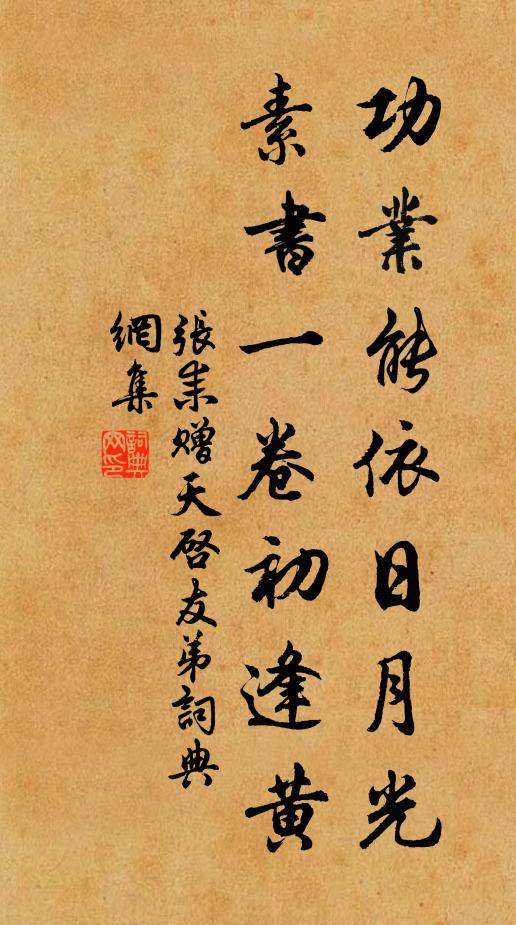 功業能依日月光
素書一卷初逢黃
張耒贈天啓友弟詞典
網集
詞典網印